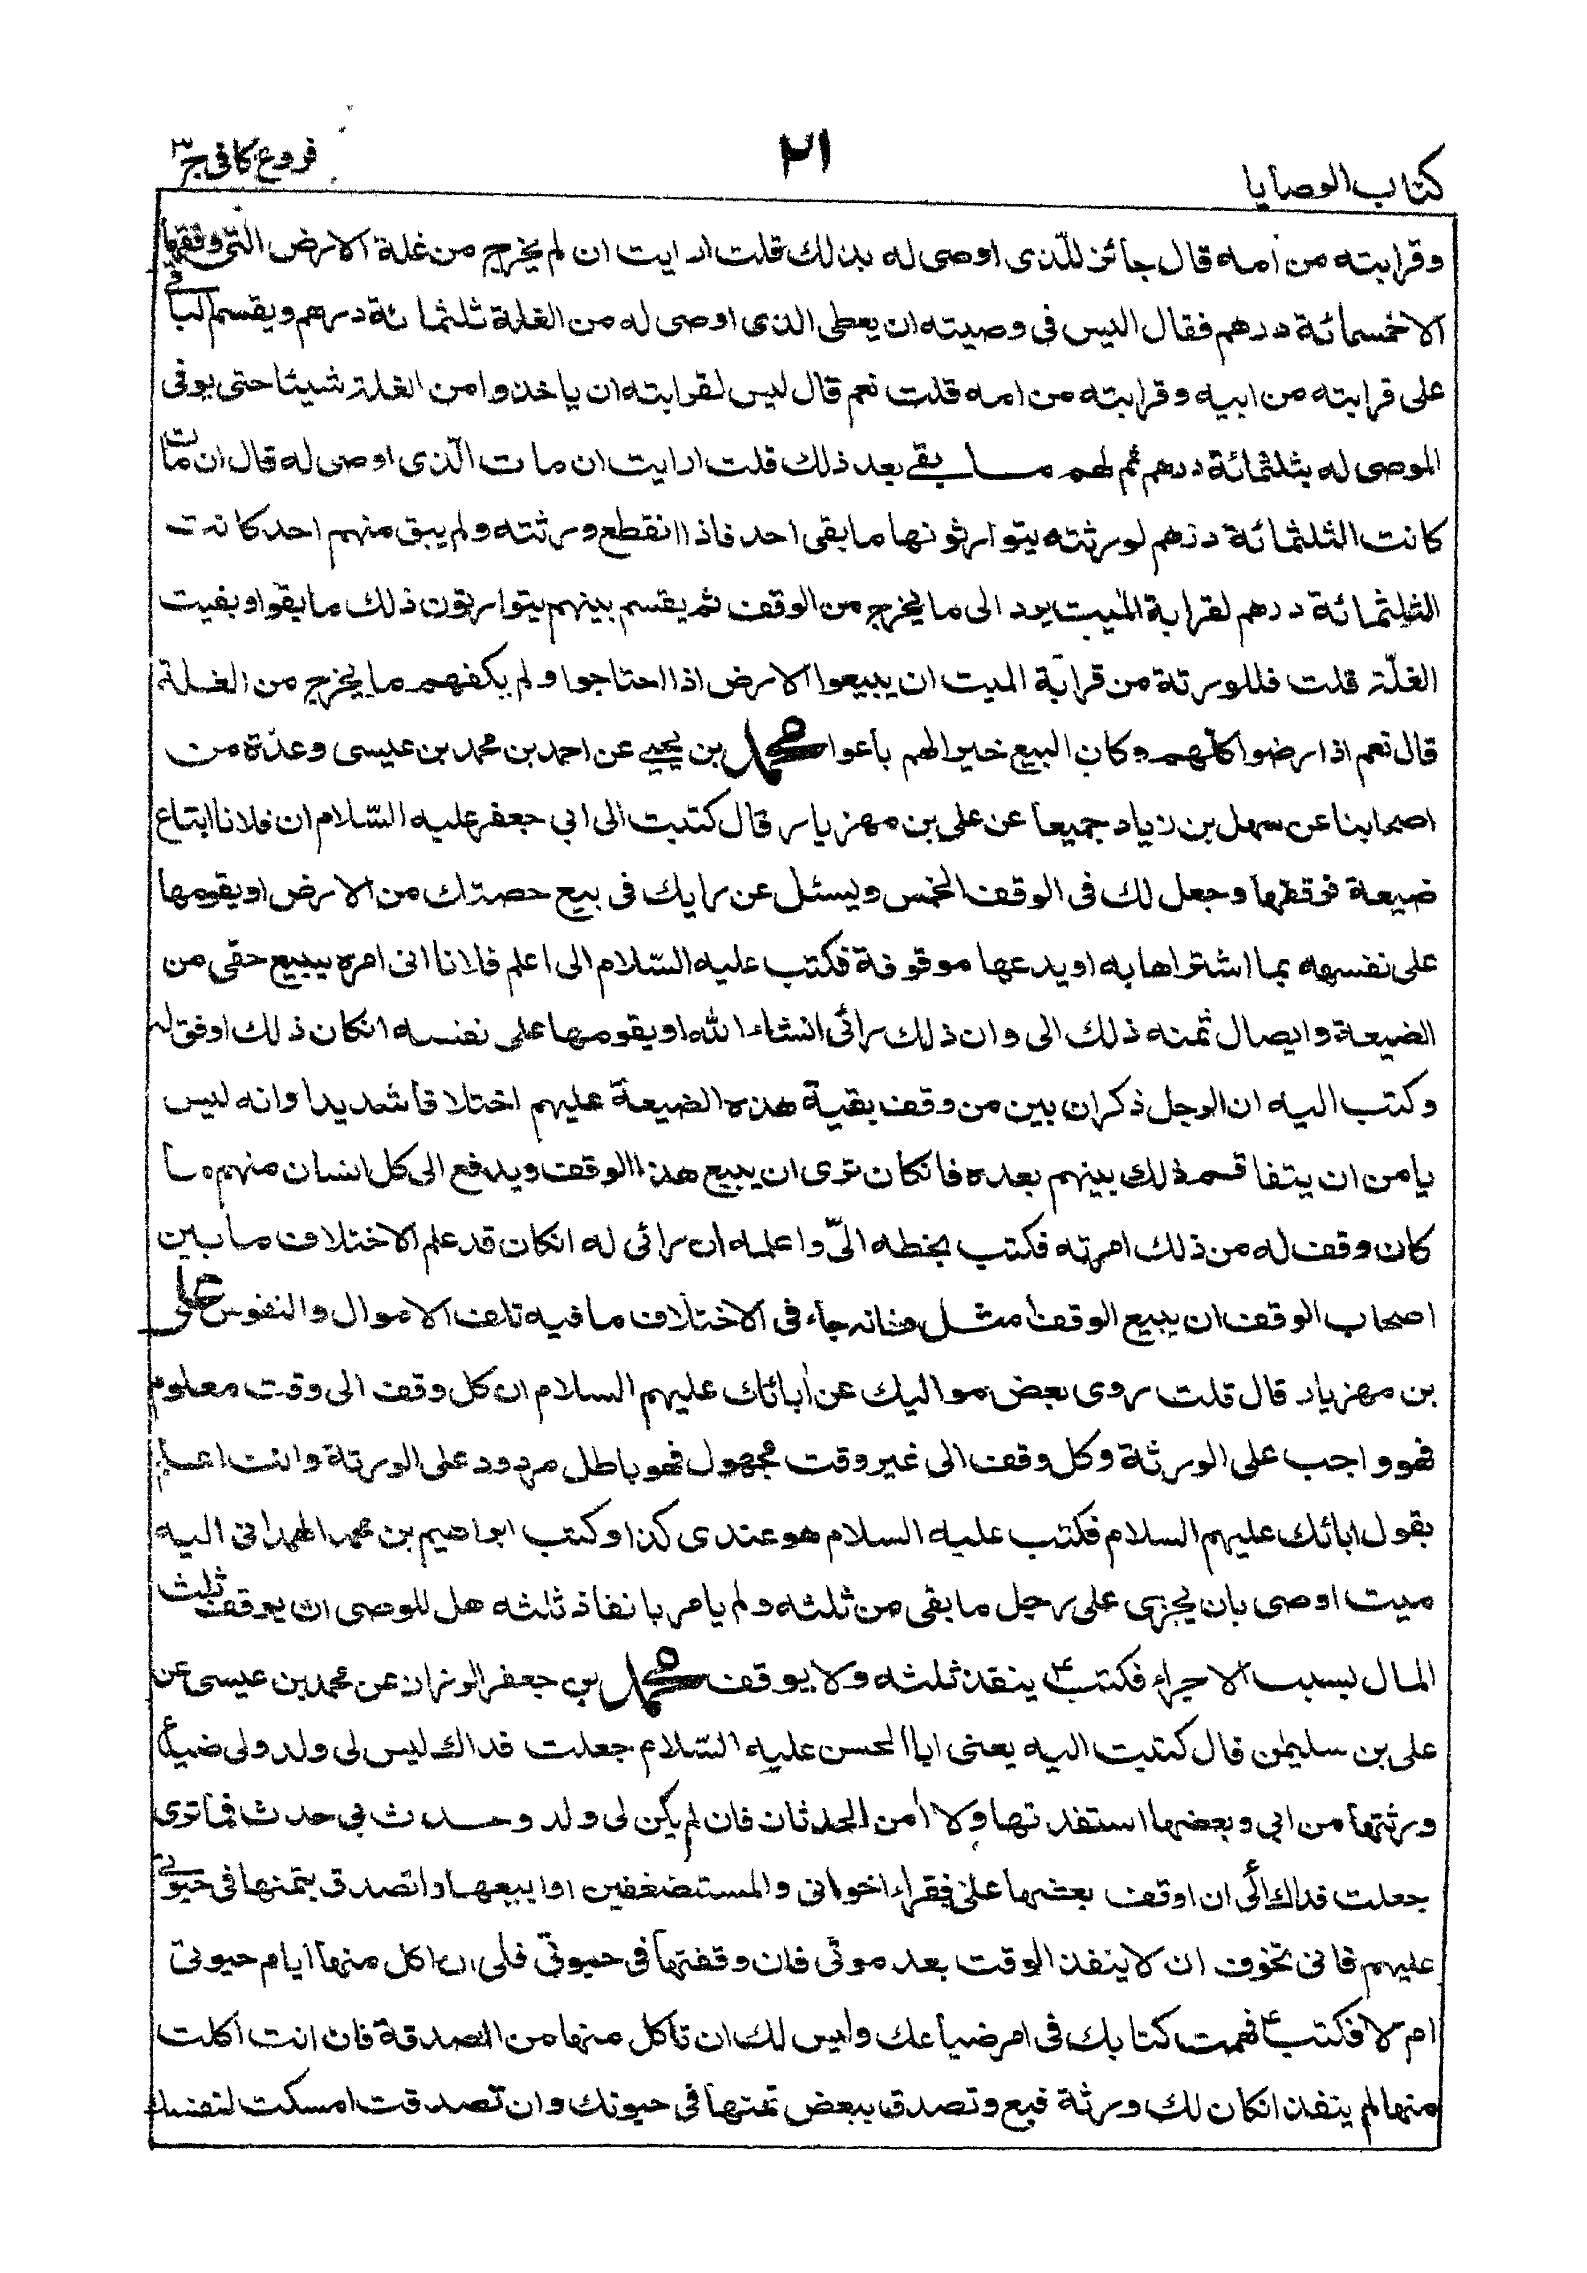 كتاب الوصايا ٢١ فروع كافى ج٣
وقرابته من امه قال جائز للّذى اوصى له بذلك قلت ارايت ان لم يخرج من غلة الارض التى وقفها
الا خمسمائة درهم فقال اليس فى وصيته ان يعطى الذى اوصى له من الغلة ثلثمائة درهم ويقسم الباقى
على قرابته من ابيه وقرابته من امه قلت نعم قال ليس لقرابته ان ياخذوا من الغلة شيئا حتى يوفى
الموصى له بثلثمائة درهم ثم لهم ما بقى بعد ذلك قلت ارايت ان مات الّذى اوصى له قال ان مات
كانت الثلثمائة درهم لورثته يتوارثونها ما بقى احد فاذا انقطع ورثته ولم يبق منهم احد كانت
الثلثمائة درهم لقرابة الميت يرد الى ما يخرج من الوقف ثم يقسم بينهم يتوارثون ذلك ما بقوا وبقيت
الغلّة قلت فللورثة من قرابة الميت ان يبيعوا الارض اذا احتاجوا ولم يكفهم ما يخرج من الغلة
قال نعم اذا رضوا كلّهم وكان البيع خيرا لهم باعوا محمد بن يحيى عن احمد بن محمد بن عيسى وعدّة من
اصحابنا عن سهل بن زياد جميعاً عن على بن مهزيار قال كتبت الى ابى جعفر عليه السّلام ان فلانا ابتاع
ضيعة فوقفها وجعل لك فى الوقف الخمس ويسئل عن رايك فى بيع حصتك من الارض او يقومها
على نفسه بما اشتراها به او يدعها موقوفة فكتب عليه السّلام الى اعلم فلانا انى امره ببيع حقى من
الضيعة وايصال ثمنه ذلك الى وان ذلك رائى انشاء الله او يقومها على نفسه انكان ذلك اوفق له
وكتب اليه ان الرجل ذكر ان بين من وقف بقية هذه الضيعة عليهم اختلافا شديدا وانه ليس
يامن ان يتفاقم ذلك بينهم بعده فانكان ترى ان يبيع هذا الوقف ويدفع الى كل انسان منهم ما
كان وقف له من ذلك امرته فكتب بخطه الىّ واعلمه ان رائى له انكان قد علم الاختلاف ما بين
اصحاب الوقف ان يبيع الوقف امثل فانه جاء فى الاختلاف ما فيه تلف الاموال والنفوس على
بن مهزيار قال قلت روى بعض مواليك عن أبائك عليهم السلام ان كل وقف الى وقت معلوم
فهو واجب على الورثة وكل وقف الى غير وقت مجهول فهو باطل مردود على الورثة وانت اعلم
بقول ابائك عليهم السلام فكتب عليه السلام هو عندى كذا وكتب ابراهيم بن محمد الهمدانى اليه
ميت اوصى بان يجزى على رجل ما بقى من ثلثه ولم يامر بانفاذ ثلثه هل للوصى ان يوقف ثلث
المال بسبب الاجراء فكتب ع ينفذ ثلثه ولا يوقف محمد بن جعفر الرزاز عن محمد بن عيسى عن
على بن سليمن قال كتبت اليه يعنى ابا الحسن عليه السّلام جعلت فداك ليس لى ولد ولى ضياع
ورثتها من ابى وبعضها استفدتها ولا أمن الحدثان فان لم يكن لى ولد وحدث بى حدث فما ترى
جعلت فداك الى ان اوقف بعضها على فقراء اخوانى والمستضعفين او ابيعها واتصدق بثمنها فى حيوتى
عليهم فانى تخوف ان لا ينفذ الوقت بعد موتى فان وقفتها فى حيوتى فلى ان اكل منها ايام حيوتى
ام لا فكتب ع فهمت كتابك فى امر ضياعك وليس لك ان تاكل منها من الصدقة فان انت اكلت
منها لم ينفذ انكان لك ورثة فبع وتصدق ببعض ثمنها فى حيوتك وان تصدقت امسكت لنفسك